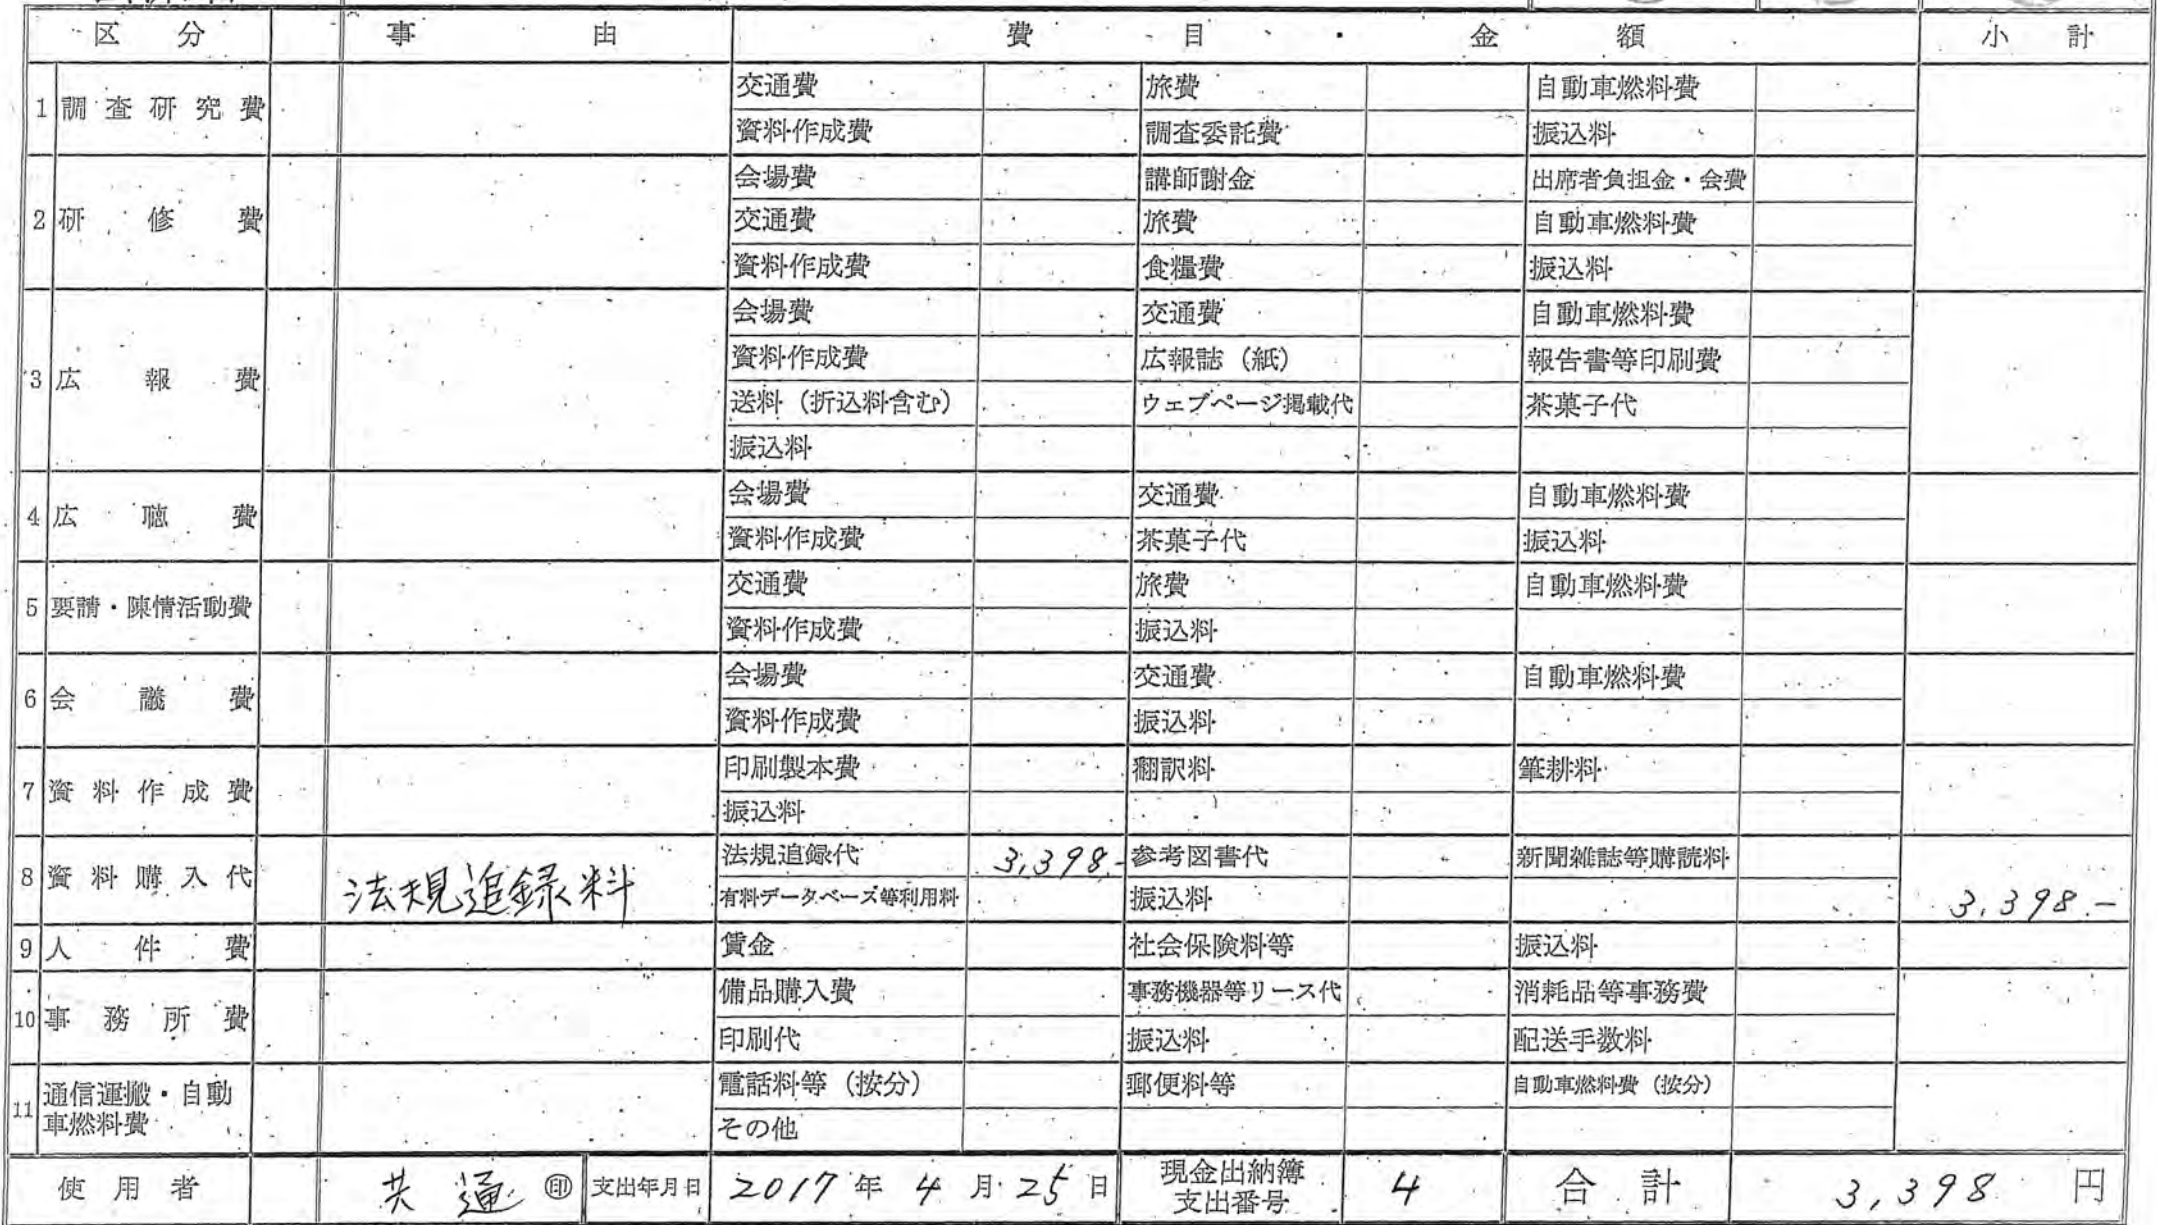 区分 事由 費目・金額 小計
1 調査研究費 交通費 旅費 自動車燃料費
資料作成費 調査委託費 振込料
2 研修費 会場費 講師謝金 出席者負担金・会費
交通費 旅費 自動車燃料費
資料作成費 食糧費 振込料
3 広報費 会場費 交通費 自動車燃料費
資料作成費 広報誌（紙） 報告書等印刷費
送料（折込料含む） ウェブページ掲載代 茶菓子代
振込料
4 広聴費 会場費 交通費 自動車燃料費
資料作成費 茶菓子代 振込料
5 要請・陳情活動費 交通費 旅費 自動車燃料費
資料作成費 振込料
6 会議費 会場費 交通費 自動車燃料費
資料作成費 振込料
7 資料作成費 印刷製本費 翻訳料 筆耕料
振込料
8 資料購入代 法規追録料 法規追録代 3,398.- 参考図書代 新聞雑誌等購読料
有料データベーズ等利用料 振込料 3,398.-
9 人件費 賃金 社会保険料等 振込料
10 事務所費 備品購入費 事務機器等リース代 消耗品等事務費
印刷代 振込料 配送手数料
11 通信運搬・自動 電話料等（按分） 郵便料等 自動車燃料費（按分）
車燃料費 その他
使用者 共通 ㊞ 支出年月日 2017年4月25日 現金出納簿 4 合計 3,398 円
支出番号